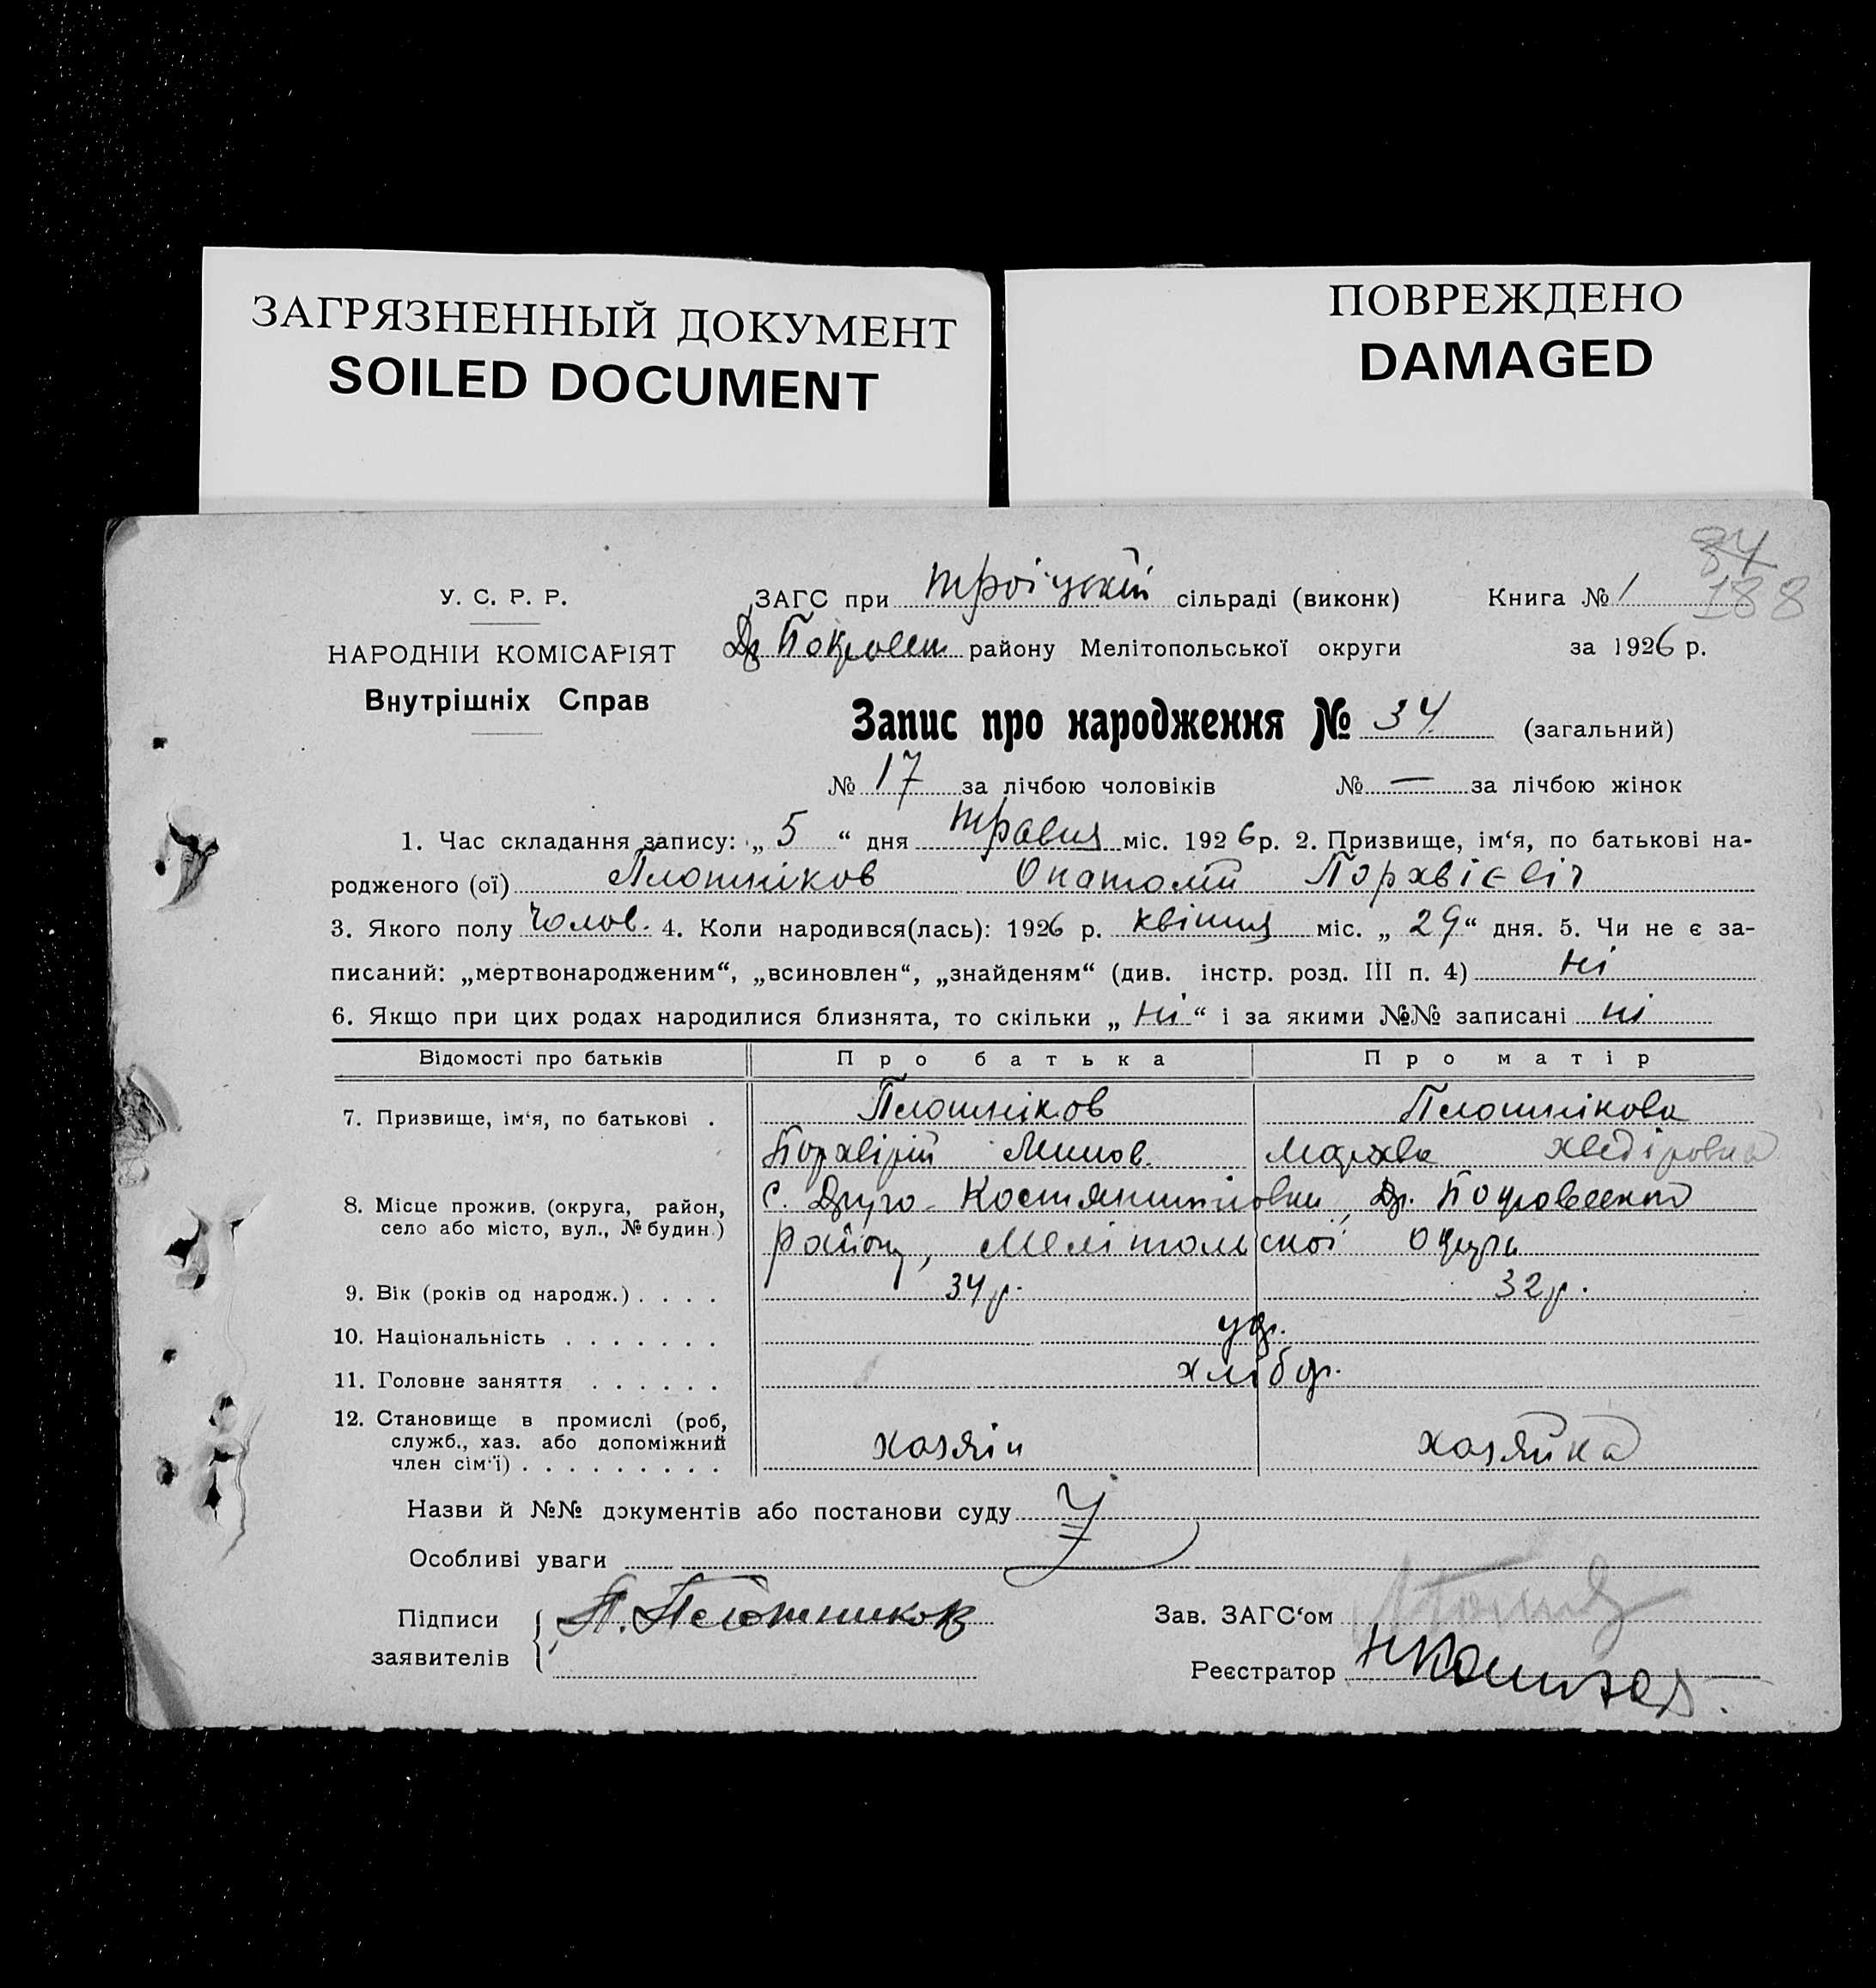 ЗАГРЯЗНЕННЫЙ ДОКУМЕНТ
SOILED DOCUMENT
ПОВРЕЖДЕНО
DAMAGED
84
188
У. С. Р. Р.
НАРОДНІЙ КОМІСАРІЯТ
Внутрішніх Справ
ЗАГС при Троіцькій сільраді (виконк) Книга № 1
Др Покровськ району Мелітопольської округи за 1926 р.
Запис про народження № 34 (загальний)
№ 17 за лічбою чоловіків № — за лічбою жінок
1. Час складання запису: „ 5 “ дня травня міс. 1926 р. 2. Призвище, ім‘я, по батькові на-
родженого (ої) Плотніков Онатолій Порхвієвіч
3. Якого полу Чолов. 4. Коли народився(лась): 1926 р. квітня міс. „ 29 “ дня. 5. Чи не є за-
писаний: „мертвонародженим“, „всиновлен“, „знайденям“ (див. інстр. розд. III п. 4) ні
6. Якщо при цих родах народилися близнята, то скільки „ ні “ і за якими №№ записані ні
Відомості про батьків Про батька Про матір
7. Призвище, ім‘я, по батькові . Плотніков Плотнікова
Порхвірій Мархва Хведіровна
8. Місце прожив. (округа, район, село або місто, вул., № будин.) С. Друго-Костянтинівки, Др. Покровського
району, Мелітопольскої округи
9. Вік (років од народж.) . . . . 34 р. 32 р.
10. Національність . . . . . . . укр.
11. Головне заняття . . . . . . хлібор.
12. Становище в промислі (роб, служб., хаз. або допоміжний член сім‘ї) . . . . . . . . . хозяін хозяйка
Назви й №№ документів або постанови суду
Особливі уваги
Підписи заявителів П. Плотников
Зав. ЗАГС‘ом
Реєстратор